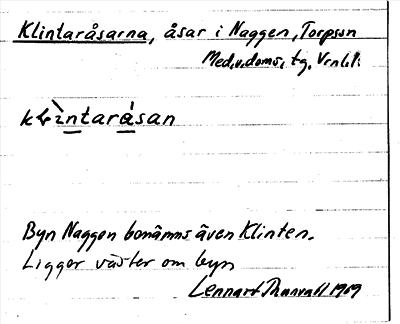 Klintaråsarna, åsar i Naggen, Torpssn
Med.v.doms. tg. Vrnl.l.
klìntaråsan
Byn Naggen benämns även Klinten.
Ligger väster om byn
Lennart Thanvall 1969